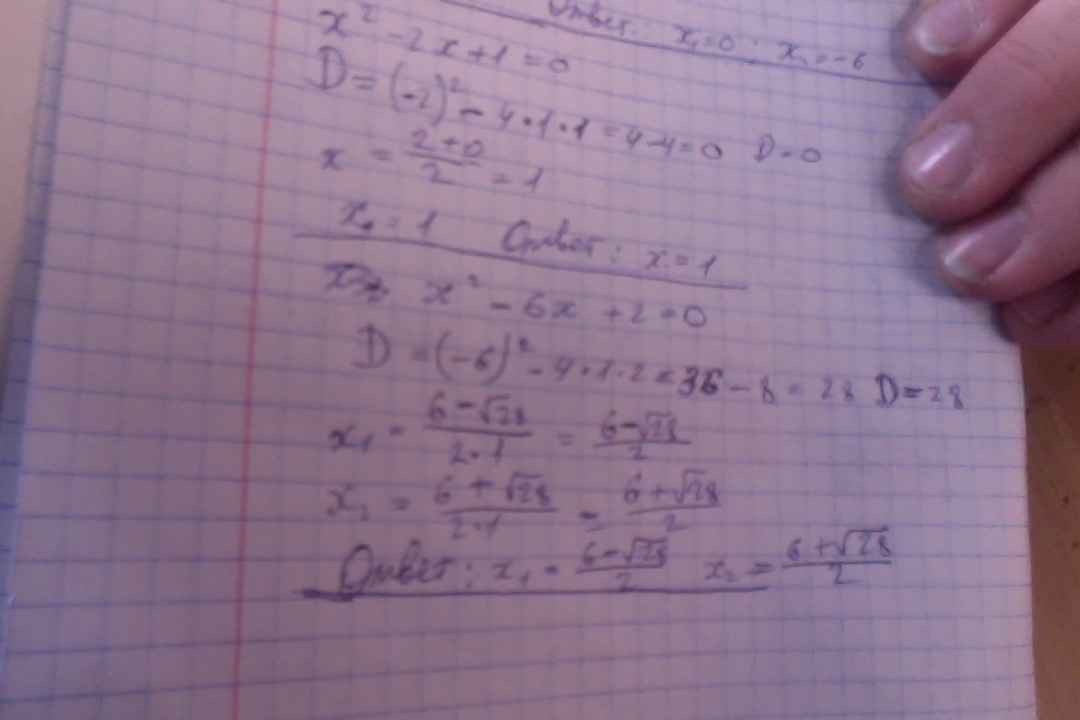 Ответ: x₁=0; x₂=-6
x² -2x+1=0
D=(-2)² - 4·1·1=4-4=0 D=0
x = (2+0)/2 = 1
x₁ = 1 Ответ: x=1
x² - 6x +2=0
D =(-6)² - 4·1·2=36-8=28 D=28
x₁ = (6-√28)/(2·1) = (6-√28)/2
x₂ = (6+√28)/(2·1) = (6+√28)/2
Ответ: x₁ = (6-√28)/2 x₂ = (6+√28)/2